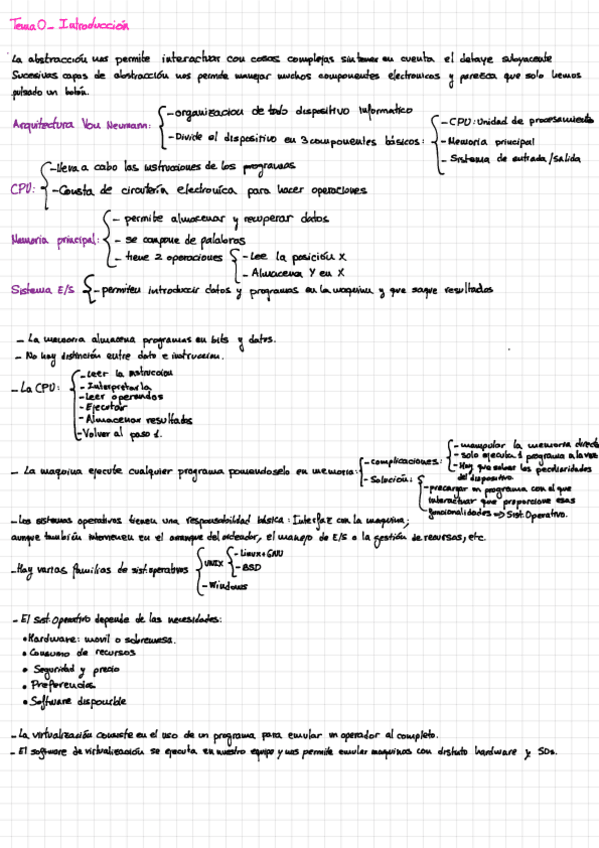 Tema 0_ Introducción
La abstracción nos permite interactuar con cosas complejas sin tener en cuenta el detalle subyacente
Sucesivas capas de abstracción nos permite manejar muchos componentes electronicos y parezca que solo hemos
pulsado un botón.
Arquitectura Von Neumann:
- organizacion de todo dispositivo informatico
- Divide el dispositivo en 3 componentes básicos:
- CPU: Unidad de procesamiento
- Memoria principal
- Sistema de entrada/salida
CPU:
- lleva a cabo las instrucciones de los programas
- Consta de circuitería electronica para hacer operaciones
Memoria principal:
- permite almacenar y recuperar datos
- se compone de palabras
- tiene 2 operaciones
- Lee la posición X
- Almacena Y en X
Sistema E/S
- permiten introducir datos y programas en la maquina y que saque resultados
- La memoria almacena programas en bits y datos.
- No hay distinción entre dato e instruccion.
- La CPU:
- Leer la instruccion
- Interpretarla
- Leer operandos
- Ejecutar
- Almacenar resultados
- Volver al paso 1.
- La maquina ejecute cualquier programa poniendoselo en memoria:
- complicaciones:
- manipular la memoria direct
- solo ejecuta 1 programa a la vez
- Hay que salvar las peculiaridades
del dispositivo.
- Solución:
- precargar un programa con el que
interactuar que proporcione esas
funcionalidades => Sist. Operativo.
- Los sistemas operativos tienen una responsabilidad básica: Interfaz con la maquina;
aunque también intervienen en el arranque del ordenador, el manejo de E/S o la gestión de recursos, etc.
- Hay varias familias de sist. operativos
- UNIX
- Linux + GNU
- BSD
- Windows
- El Sist. Operativo depende de las necesidades:
• Hardware: movil o sobremesa.
• Consumo de recursos
• Seguridad y precio
• Preferencias
• Software disponible
- La virtualización consiste en el uso de un programa para emular un operador al completo.
- El software de virtualización se ejecuta en nuestro equipo y nos permite emular maquinas con distinto hardware y SOs.